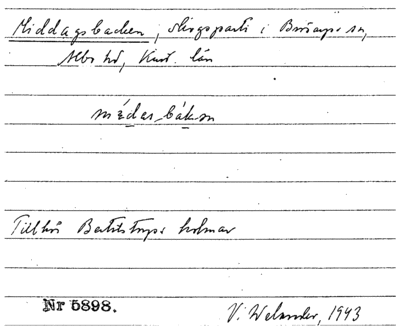 Middagsbacken, skogsparti i Brösarps sn,
Albo hd, Krist. län
médasbákan
Tillhör Bertilstorps holmar
Nr 5898.
V. Welander, 1943